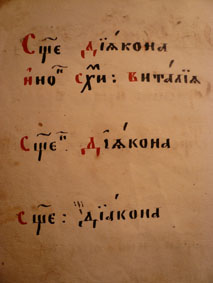 Сщ҃е дїѧ́кона
і҆но҆ⷦ҇ схи́ⷨ: виталїѧ
Сщ҃е дїѧ́кона
Сщ҃е: дїѧ́кона